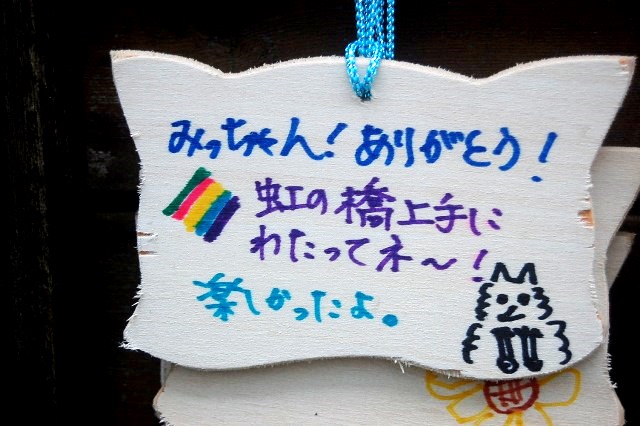 みっちゃん！ありがとう！
虹の橋上手に
わたってネ～！
楽しかったよ。